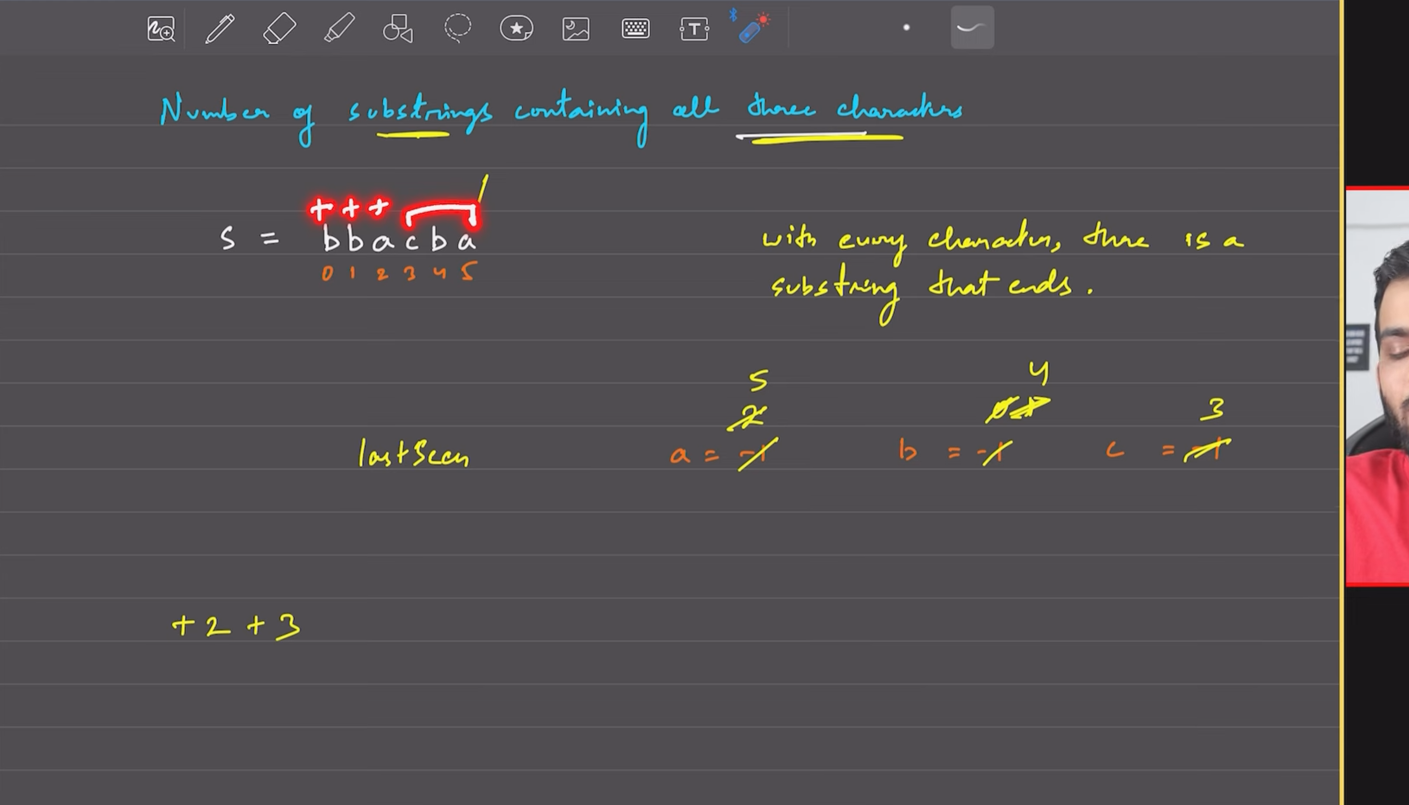 Number of substrings containing all three characters
+ + +
s = b b a c b a
0 1 2 3 4 5
with every character, there is a
substring that ends.
5 4
2 0 1 3
lastSeen a = -1 b = -1 c = -1
+ 2 + 3